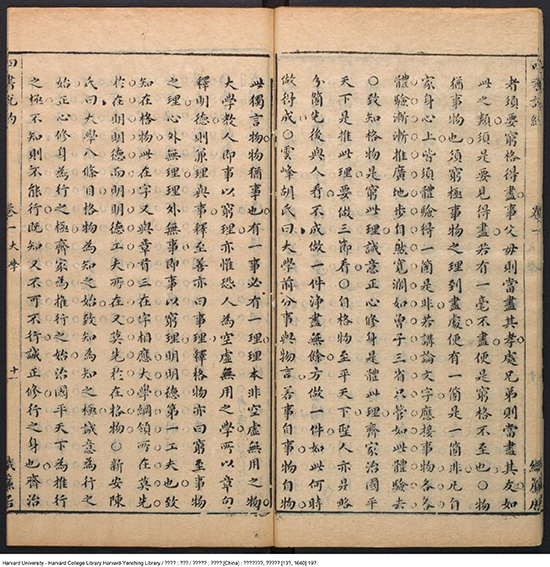 四書說約
卷一
者須要窮格得盡事父母則當盡其孝處兄弟則當盡其友如
此之類須是要見得盡若有一毫不盡便是窮格不至也○物
猶事物也須窮極事物之理到盡處便有一箇是一箇非凡自
家身心上皆須體驗得一箇是非若講論文字應接事物各各
體驗漸漸推廣地步自然寬濶如曾子三省只管如此體驗去
○致知格物是窮此理誠意正心修身是體此理齊家治國平
天下是推此理要做三節看○自格物至平天下聖人亦是略
分箇先後與人看不成做一件淨盡無餘方做一件如此何時
做得成○雲峰胡氏曰大學前分事與物言若事自事物自物
此獨言物物猶事也有一事必有一理理本非空虛無用之物
大學教人即事以窮理亦惟恐人為空虛無用之學所以章句
釋明德則兼理與事釋至善亦曰事理釋格物亦曰窮至事物
之理心外無理理外無事即事以窮理明明德第一工夫也致
知在格物此在字又與章首三在字相應大學綱領所在莫先
於在明明德而明明德工夫所在又莫先於在格物○新安陳
氏曰大學八條目格物為知之始致知為知之極誠意為行之
始正心修身為行之極齊家為推行之始治國平天下為推行
之極不知則不能行既知又不可不行誠正修行之身也齊治
四書說約
卷一大學
十一
Harvard University - Harvard College Library Harvard-Yenching Library / ???? : ??? / ????? ; ????.[China] : ???????, ????? [13?, 1640] 19?.